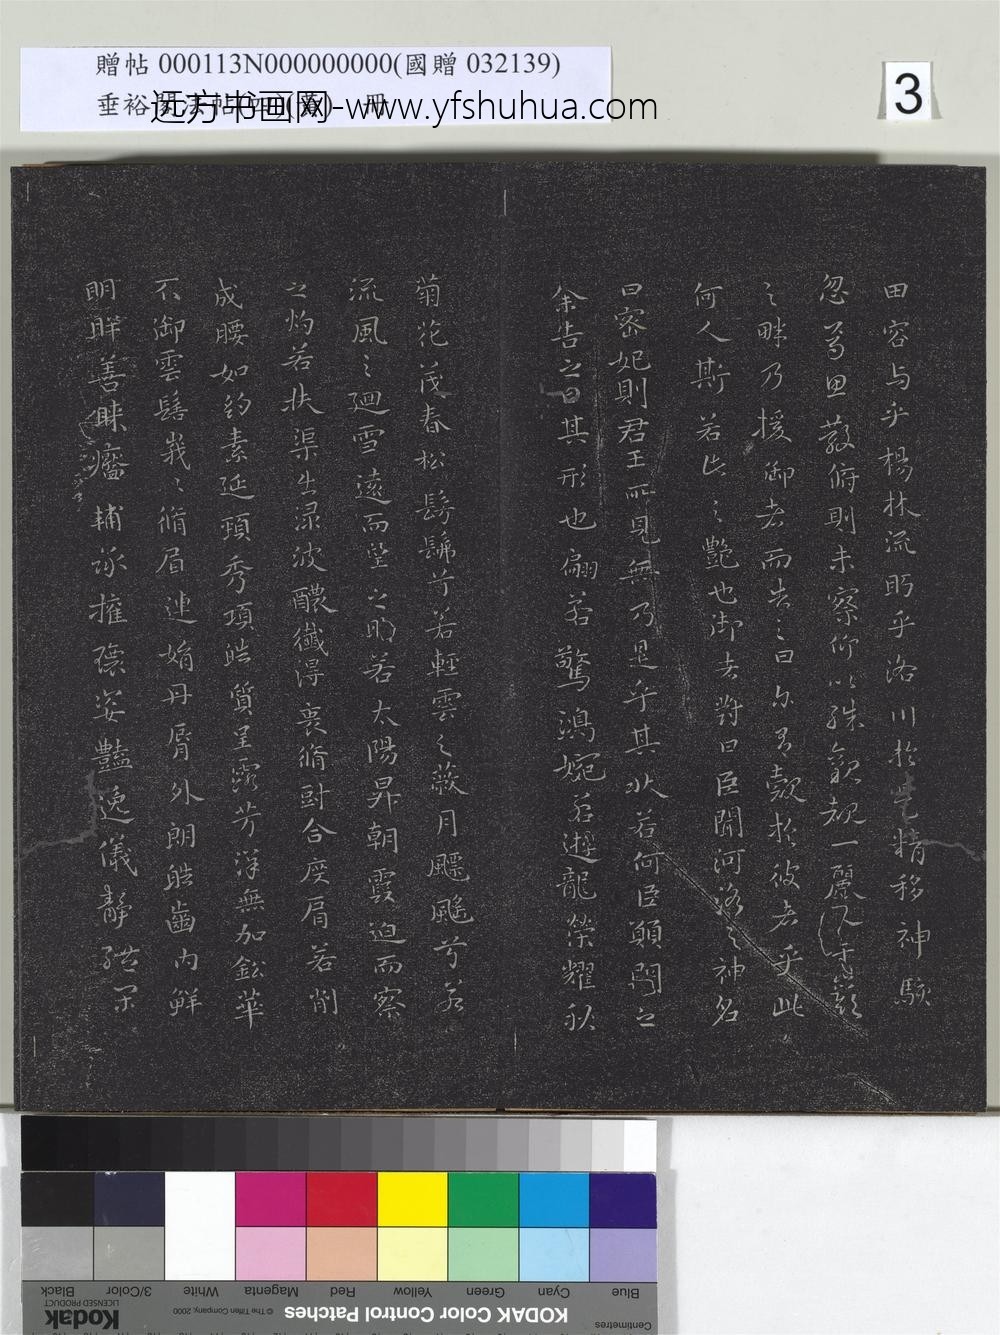 贈帖 000113N000000000(國贈 032139)
垂裕閣法帖
远方书画网-www.yfshuhua.com
3
田容与乎楊林流眄乎洛川於是精移神駭
忽焉思散俯則未察仰以殊觀覩一麗人于巖
之畔乃援御者而告之曰尔有覿於彼者乎此
何人斯若此之艷也御者對曰臣聞河洛之神名
曰宓妃則君王所見無乃是乎其狀若何臣願聞之
余告之曰其形也翩若驚鴻婉若遊龍榮耀秋
菊花茂春松髣髴兮若輕雲之蔽月飄飖兮若
流風之廻雪遠而望之明若太陽昇朝霞迫而察
之灼若芙渠出渌波醲纖得衷脩短合度肩若削
成腰如約素延頸秀項皓質呈露芳澤無加鉛華
不御雲髻峩峩脩眉連娟丹脣外朗皓齒内鮮
明眸善睞靨輔承權瓌姿豔逸儀靜體閑
Blue
Cyan
Green
Yellow
Red
Magenta
White
3/Color
Black
Centimetres
KODAK Color Control Patches
© The Tiffen Company, 2000
Kodak
LICENSED PRODUCT